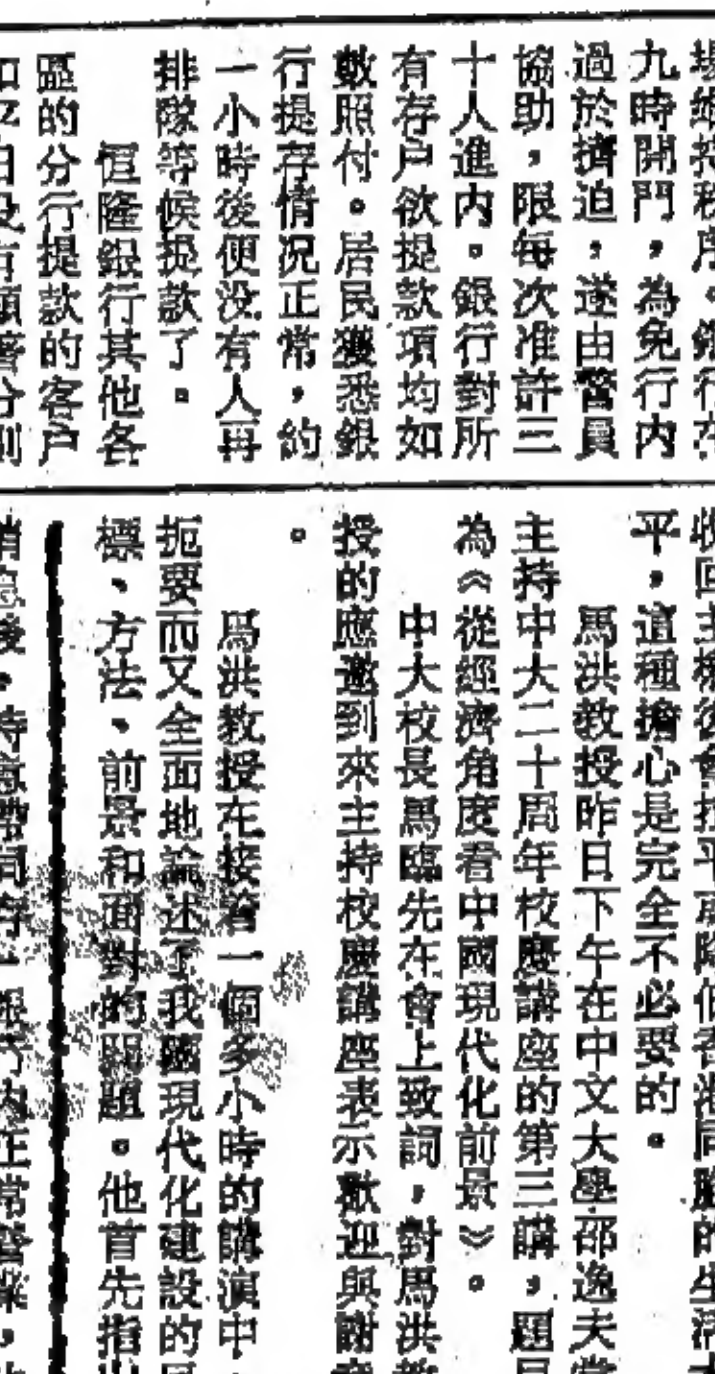 場維持秩序。銀行在
九時開門，為免行內
過於擠迫，遂由警員
協助，限每次准許三
十人進内。銀行對所
有存户欲提款項均如
數照付。居民獲悉銀
行提存情况正常，約
一小時後便没有人再
排隊等候提款了。
恒隆銀行其他各
區的分行提款的客户
平日没有顯著分別
收回主權後會
平，這種擔心是完全不必要的。
馬洪教授昨日下午在中文大學邵逸夫堂
主持中大二十周年校慶講座的第三講，題目
為《從經濟角度看中國現代化前景》。
中大校長馬臨先在會上致詞，對馬洪教
授的應邀到來主持校慶講座表示歡迎與謝意
。
馬洪教授在接着一個多小時的講演中，
扼要而又全面地論述了我國現代化建設的目
標、方法、前景和面對的問題。他首先指出